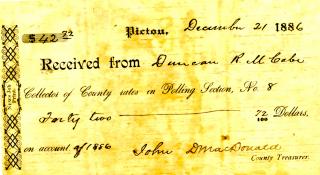 $42 72 Pictou, December 21 1886
Received from Duncan R McCabe
Collector of County rates in Polling Section, No. 8
Forty two 72/100 Dollars.
on account of 1886 John D McDonald
County Treasurer.